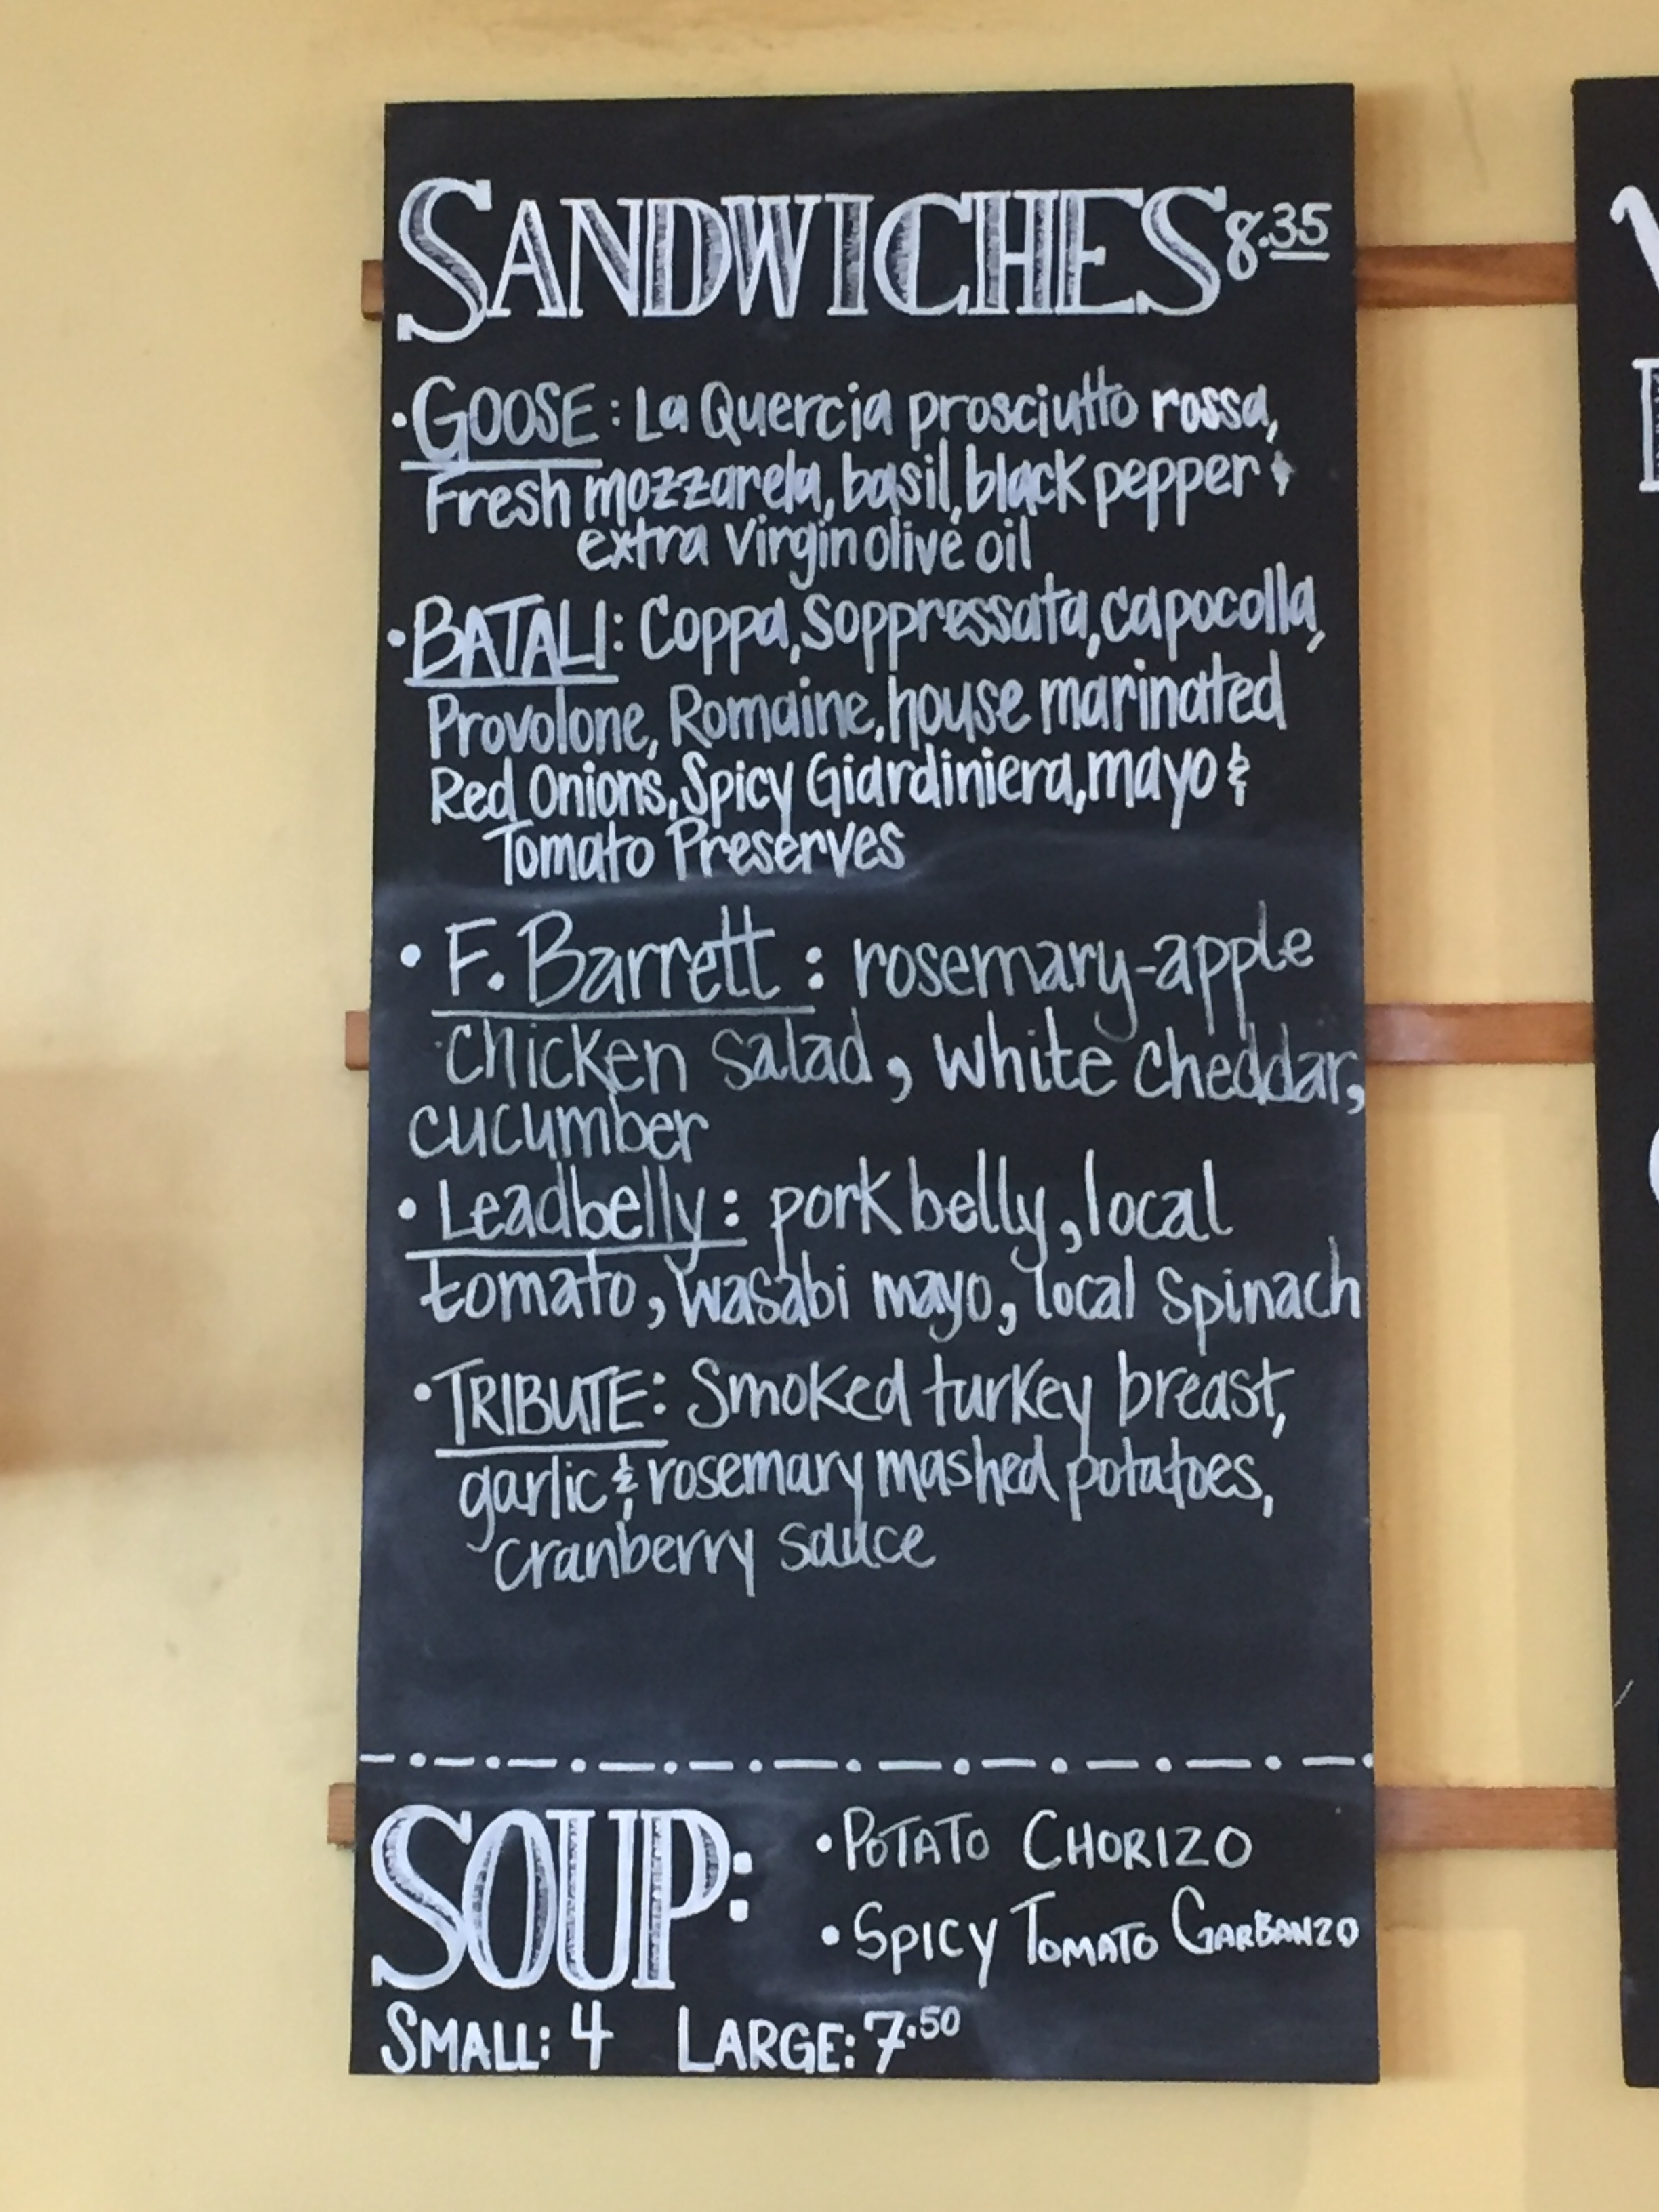 SANDWICHES 8.35
• GOOSE: La Quercia prosciutto rossa,
Fresh mozzarela, basil, black pepper &
extra virgin olive oil
• BATALI: Coppa, Soppressata, capocolla,
Provolone, Romaine, house marinated
Red Onions, Spicy Giardiniera, mayo &
Tomato Preserves
• F. Barrett: rosemary-apple
chicken salad, white cheddar,
cucumber
• Leadbelly: pork belly, local
tomato, wasabi mayo, local spinach
• TRIBUTE: Smoked turkey breast,
garlic & rosemary mashed potatoes,
cranberry sauce
SOUP: • POTATO CHORIZO
• SPICY TOMATO GARBANZO
SMALL: 4 LARGE: 7.50